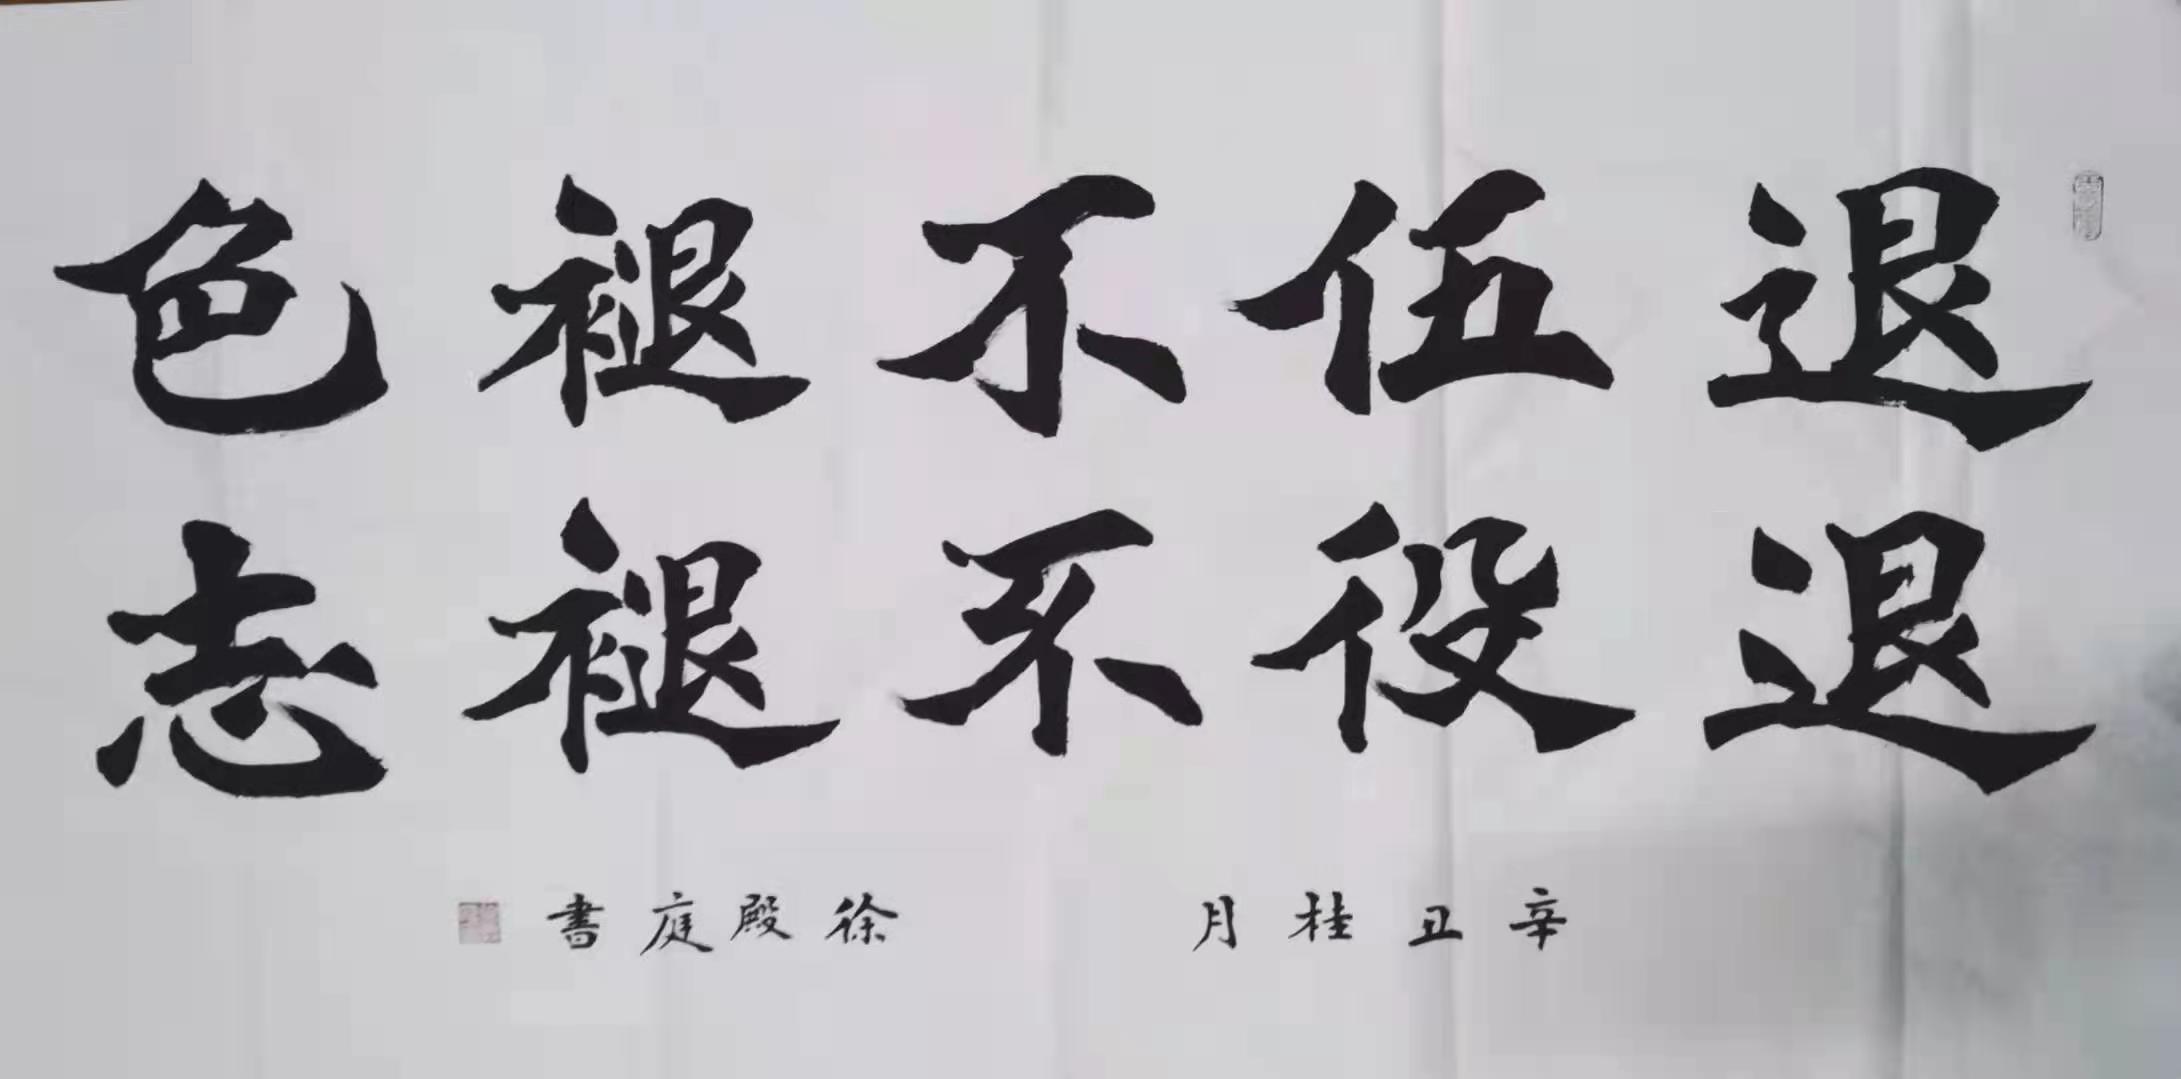 退伍不褪色
退役不褪志
辛丑桂月 徐殿庭書